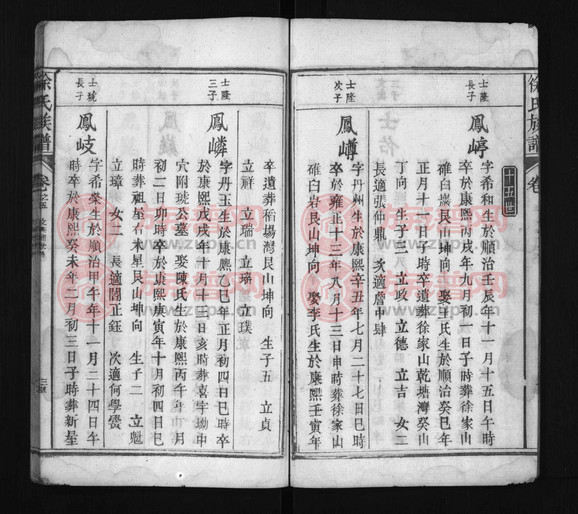 徐氏族譜
卷
十五世
士隆
長子
鳳㟷
字希和生於順治壬辰年十一月十五日午時
卒於康熙丙戌年九月初一日子時葬徐家山
碓臼岩艮山坤向 娶王氏生於順治癸巳年
正月十一日子時卒遺葬徐家山乾塘灣癸山
丁向 生子三 立政 立德 立吉 女二
長適張仲鼎 次適詹中肆
士隆
次子
鳳㠂
字丹州生於康熙辛丑年七月二十七日巳時
卒於雍正十三年八月十三日申時葬徐家山
碓臼岩艮山坤向 娶李氏生於康熙壬寅年
卒遺葬稻場灣艮山坤向 生子五 立貞
立祥 立瑞 立瑤 立璞
士隆
三子
鳳嶙
字丹玉生於康熙乙巳年正月初四日巳時卒
於康熙戊戌年十月十三日亥時葬喜字坳中
穴附琥公墓 娶陳氏生於康熙丙午年十月
初二日卯時卒於康熙庚寅年十月初四日巳
時葬祖屋右水星艮山坤向 生子二 立魁
立璋 女二 長適闇正鈺 次適何學璗
士琥
長子
鳳岐
字希榮生於順治甲午年十一月二十四日午
時卒於康熙癸未年二月初三日子時葬新星
徐氏族譜
卷之五